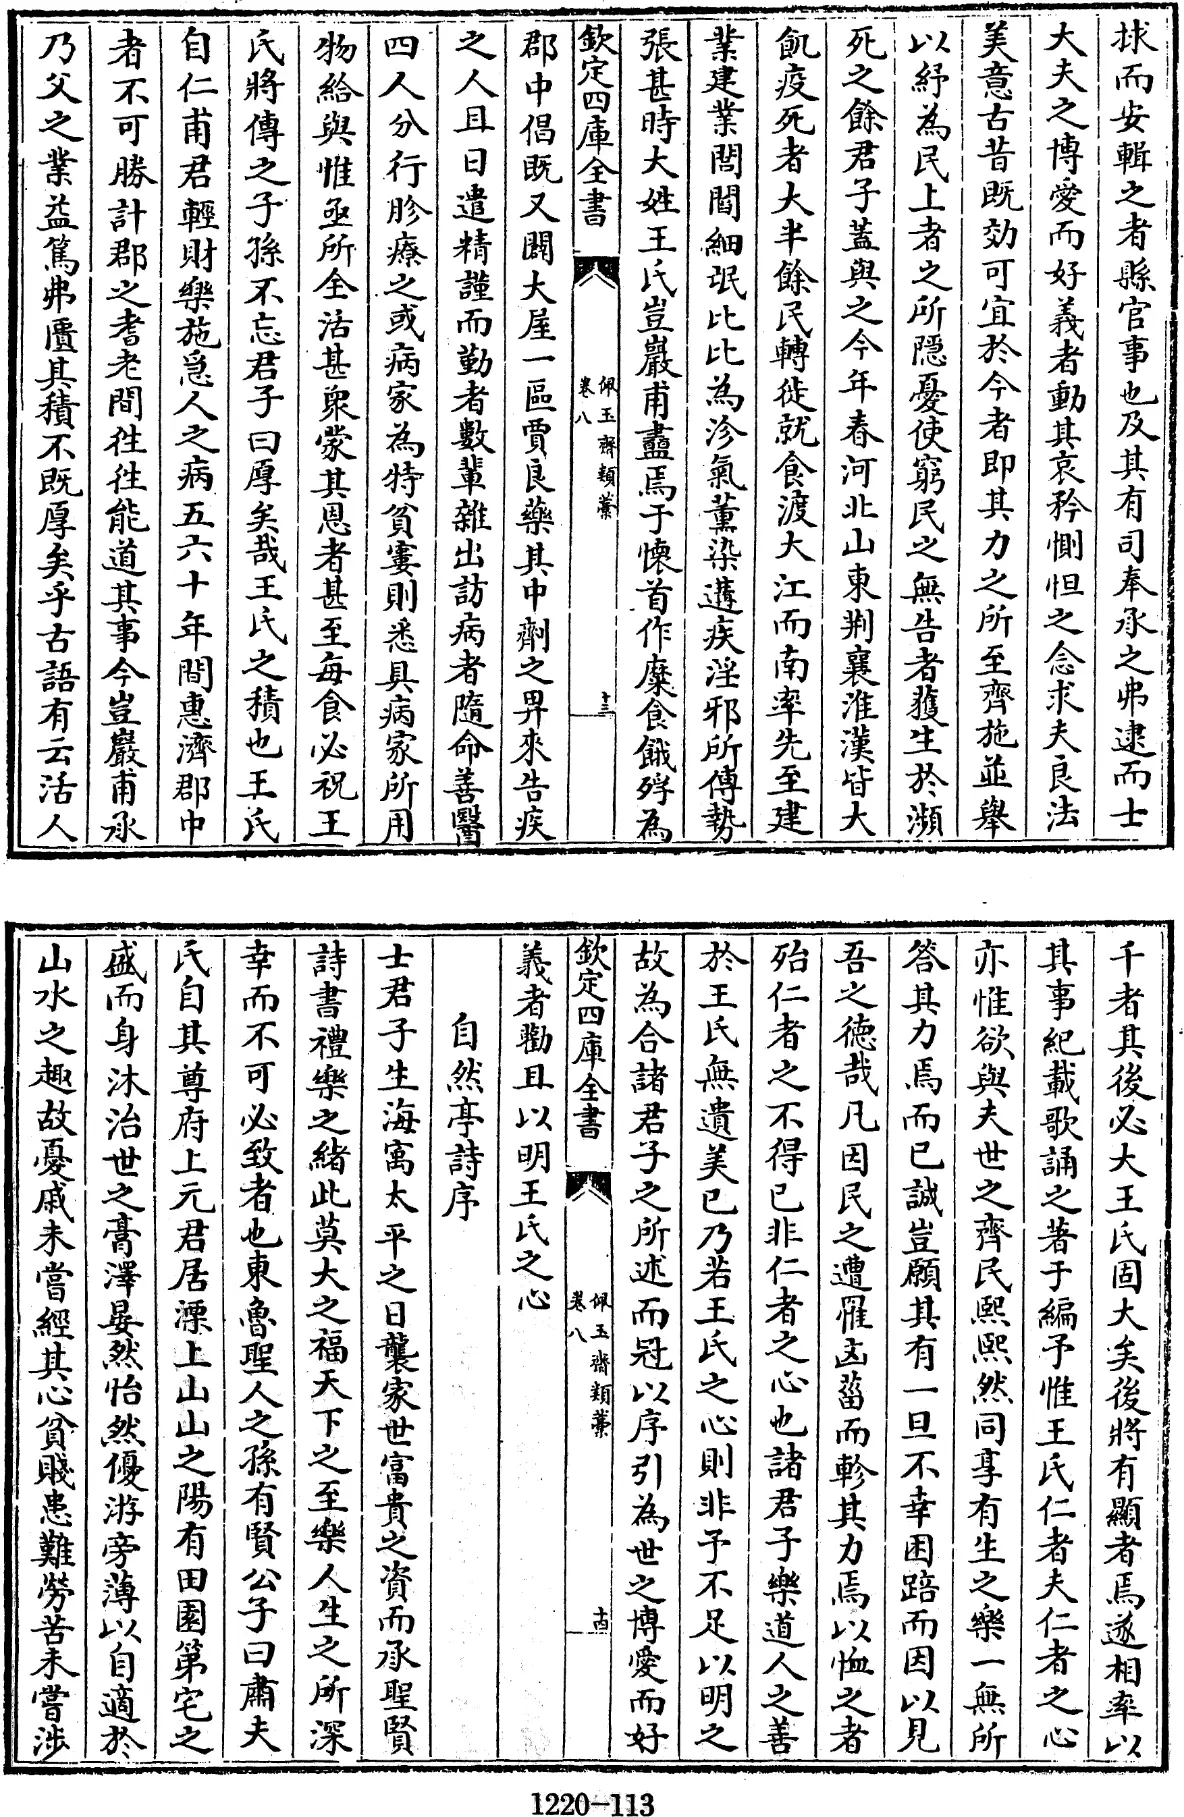 捄而安輯之者縣官事也及其有司奉承之弗逮而士
大夫之博愛而好義者動其哀矜惻怛之念求夫良法
美意古昔既効可宜於今者即其力之所至齊施並舉
以紓為民上者之所隱憂使窮民之無告者獲生於瀕
死之餘君子蓋與之今年春河北山東荆襄淮漢皆大
飢疫死者大半餘民轉徙就食渡大江而南率先至建
業建業閭閻細氓比比為沴氣薰染遘疾淫邪所傳勢
張甚時大姓王氏豈巖甫盡焉于懷首作糜食餓殍為
欽定四庫全書
佩玉齋類藁
卷八
十三
郡中倡既又闢大屋一區賈良藥其中劑之畀來告疾
之人且日遣精謹而勤者數輩雜出訪病者隨命善醫
四人分行胗療之或病家為特貧窶則悉具病家所用
物給與惟亟所全活甚衆蒙其恩者甚至每食必祝王
氏將傳之子孫不忘君子曰厚矣哉王氏之積也王氏
自仁甫君輕財樂施急人之病五六十年間惠濟郡中
者不可勝計郡之耆老間徃徃能道其事今豈巖甫承
乃父之業益篤弗匱其積不既厚矣乎古語有云活人
千者其後必大王氏固大矣後將有顯者焉遂相率以
其事紀載歌誦之著于編予惟王氏仁者夫仁者之心
亦惟欲與夫世之齊民熙熙然同享有生之樂一無所
答其力焉而已誠豈願其有一旦不幸困踣而因以見
吾之德哉凡因民之遭罹凶菑而軫其力焉以恤之者
殆仁者之不得已非仁者之心也諸君子樂道人之善
於王氏無遺美已乃若王氏之心則非予不足以明之
故為合諸君子之所述而冠以序引為世之博愛而好
欽定四庫全書
佩玉齋類藁
卷八
十四
義者勸且以明王氏之心
自然亭詩序
士君子生海寓太平之日襲家世富貴之資而承聖賢
詩書禮樂之緒此莫大之福天下之至樂人生之所深
幸而不可必致者也東魯聖人之孫有賢公子曰肅夫
氏自其尊府上元君居溧上山山之陽有田園第宅之
盛而身沐治世之膏澤晏然怡然優游旁薄以自適於
山水之趣故憂戚未嘗經其心貧賤患難勞苦未嘗涉
1220-113